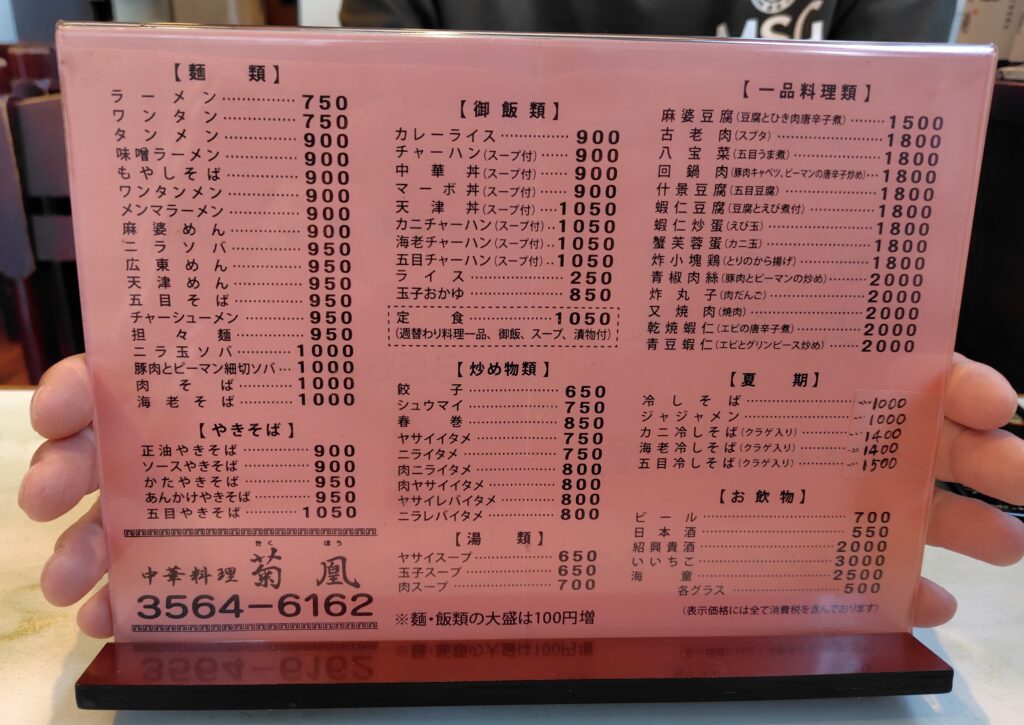 MSG
【麺　類】
ラーメン…………750
ワンタン…………750
タンメン…………900
味噌ラーメン…………900
もやしそば…………900
ワンタンメン…………900
メンマラーメン…………900
麻婆めん…………900
ニラソバ…………950
広東めん…………950
天津めん…………950
五目そば…………950
チャーシューメン…………950
担々麺…………950
ニラ玉ソバ…………1000
豚肉とピーマン細切ソバ…1000
肉そば…………1000
海老そば…………1000
【やきそば】
正油やきそば…………900
ソースやきそば…………900
かたやきそば…………950
あんかけやきそば…………950
五目やきそば…………1050
きく ほう
中華料理 菊凰
3564-6162
【御飯類】
カレーライス…………900
チャーハン(スープ付)…………900
中華丼(スープ付)…………900
マーボ丼(スープ付)…………900
天津丼(スープ付)……1050
カニチャーハン(スープ付)‥1050
海老チャーハン(スープ付)‥1050
五目チャーハン(スープ付)‥1050
ライス…………250
玉子おかゆ…………850
定食…………1050
(週替わり料理一品、御飯、スープ、漬物付)
【炒め物類】
餃子…………650
シュウマイ…………750
春巻…………850
ヤサイイタメ…………750
ニライタメ…………750
肉ニライタメ…………800
肉ヤサイイタメ…………800
ヤサイレバイタメ…………800
ニラレバイタメ…………800
【湯　類】
ヤサイスープ…………650
玉子スープ…………650
肉スープ…………700
※麺・飯類の大盛は100円増
【一品料理類】
麻婆豆腐(豆腐とひき肉唐辛子煮)……1500
古老肉(スブタ)…………1800
八宝菜(五目うま煮)…………1800
回鍋肉(豚肉キャベツ、ピーマンの唐辛子炒め)…1800
什景豆腐(五目豆腐)…………1800
蝦仁豆腐(豆腐とえび煮付)…………1800
蝦仁炒蛋(えび玉)…………1800
蟹芙蓉蛋(カニ玉)…………1800
炸小塊鶏(とりのから揚げ)…………1800
青椒肉絲(豚肉とピーマンの炒め)……2000
炸丸子(肉だんご)…………2000
叉焼肉(焼肉)…………2000
乾焼蝦仁(エビの唐辛子煮)…………2000
青豆蝦仁(エビとグリンピース炒め)……2000
【夏　期】
冷しそば…………1000
ジャジャメン…………1000
カニ冷しそば(クラゲ入り)…………1400
海老冷しそば(クラゲ入り)…………1400
五目冷しそば(クラゲ入り)…………1500
【お飲物】
ビール…………700
日本酒…………550
紹興貴酒…………2000
いいちこ…………3000
海童…………2500
各グラス…………500
(表示価格には全て消費税を含んでおります)